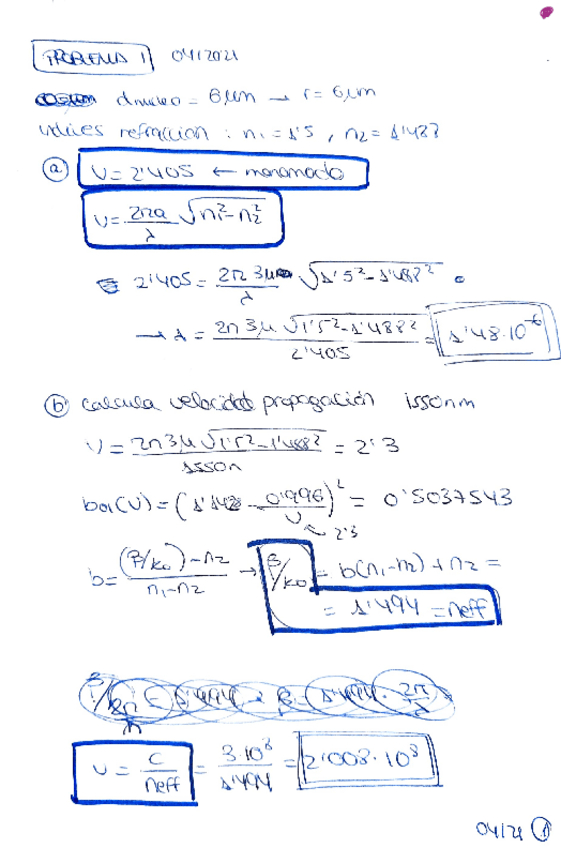 PROBLEMA 1 04/2021
dnucleo = 6μm → r = 6μm
indices refraccion : n1 = 1'5 , n2 = 1'488
a) V = 2'405 ← monomodo
V = 2πa/λ √(n1² - n2²)
2'405 = 2π 3μ/λ √(1'5² - 1'488²)
→ λ = 2π 3μ √(1'5² - 1'488²)/2'405 = 1'48·10⁻⁶
b) calcula velocidad propagación 1550nm
V = 2π 3μ √(1'5² - 1'488²)/1550n = 2'3
b01(V) = (1'142 - 0'996/V)² = 0'5037543
2'3
b = ((β/k0) - n2)/(n1 - n2) → β/k0 = b(n1 - n2) + n2 =
= 1'494 = neff
v = c/neff = 3·10⁸/1'494 = 2'008·10⁸
04/21 1